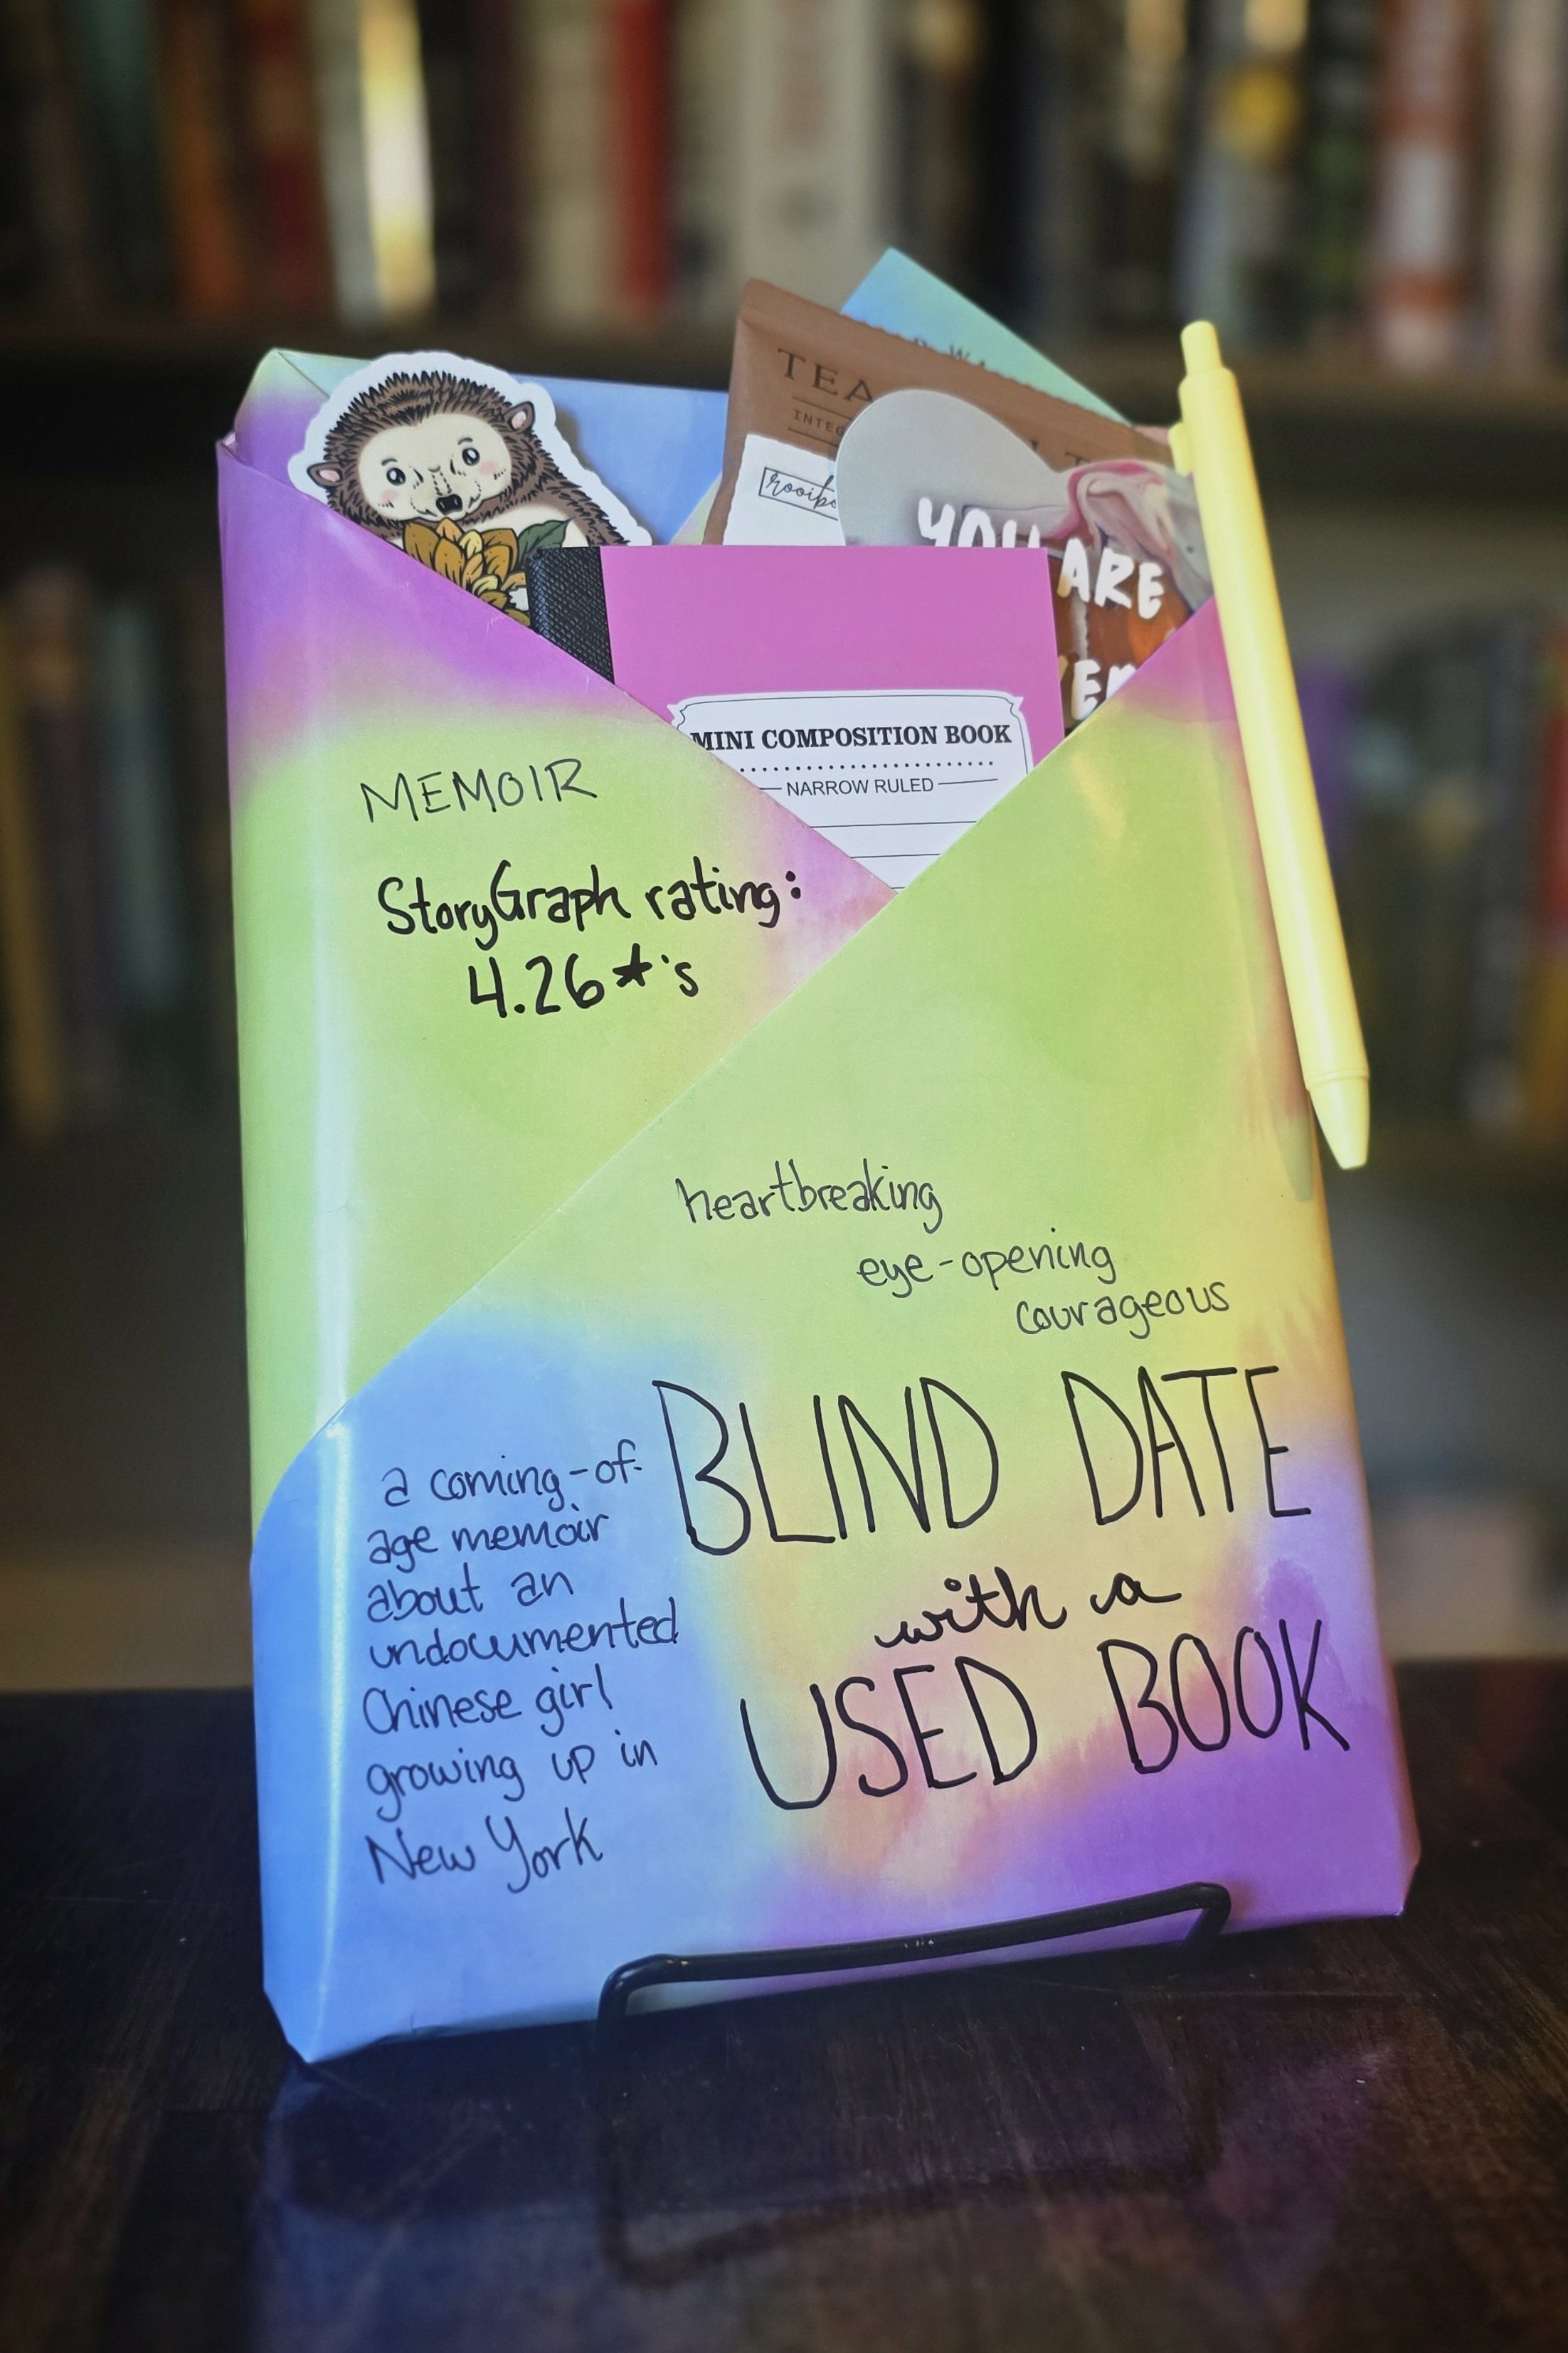 TEA
rooibo
YOU
ARE
MINI COMPOSITION BOOK
NARROW RULED
MEMOIR
StoryGraph rating:
4.26★'s
heartbreaking
eye-opening
courageous
BLIND DATE
with a
USED BOOK
a coming-of-
age memoir
about an
undocumented
Chinese girl
growing up in
New York